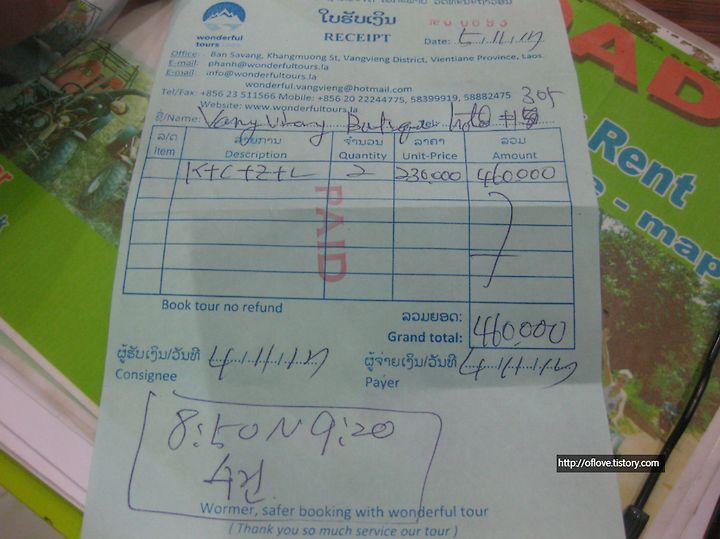 wonderful
tours
ໃບຮັບເງິນ
RECEIPT
Date: 5./11./17
Office: Ban Savang, Khangmuong St, Vangvieng District, Vientiane Province, Laos.
E-mail: phanh@wonderfultours.la
E-mail: info@wonderfultours.la
wonderful.vangvieng@hotmail.com
Tel/Fax: +856 23 511566 Mobile: +856 20 22244775, 58399919, 58882475
Website: www.wonderfultours.la
305
ຊື່/Name: Vang Vieng Boutique Hotel
ລ/ດ ລາຍການ ຈຳນວນ ລາຄາ ລວມ
Item Description Quantity Unit-Price Amount
K+C+Z+L 2 230,000 460,000
PAID
Book tour no refund
ລວມຍອດ:
Grand total: 460,000
ຜູ້ຮັບເງິນ/ວັນທີ 4/11/17 ຜູ້ຈ່າຍເງິນ/ວັນທີ 4/11/17
Consignee Payer
8:50 ~ 9:20
수건
Wormer, safer booking with wonderful tour
( Thank you so much service our tour )
AD
Rent
e - map
http://oflove.tistory.com